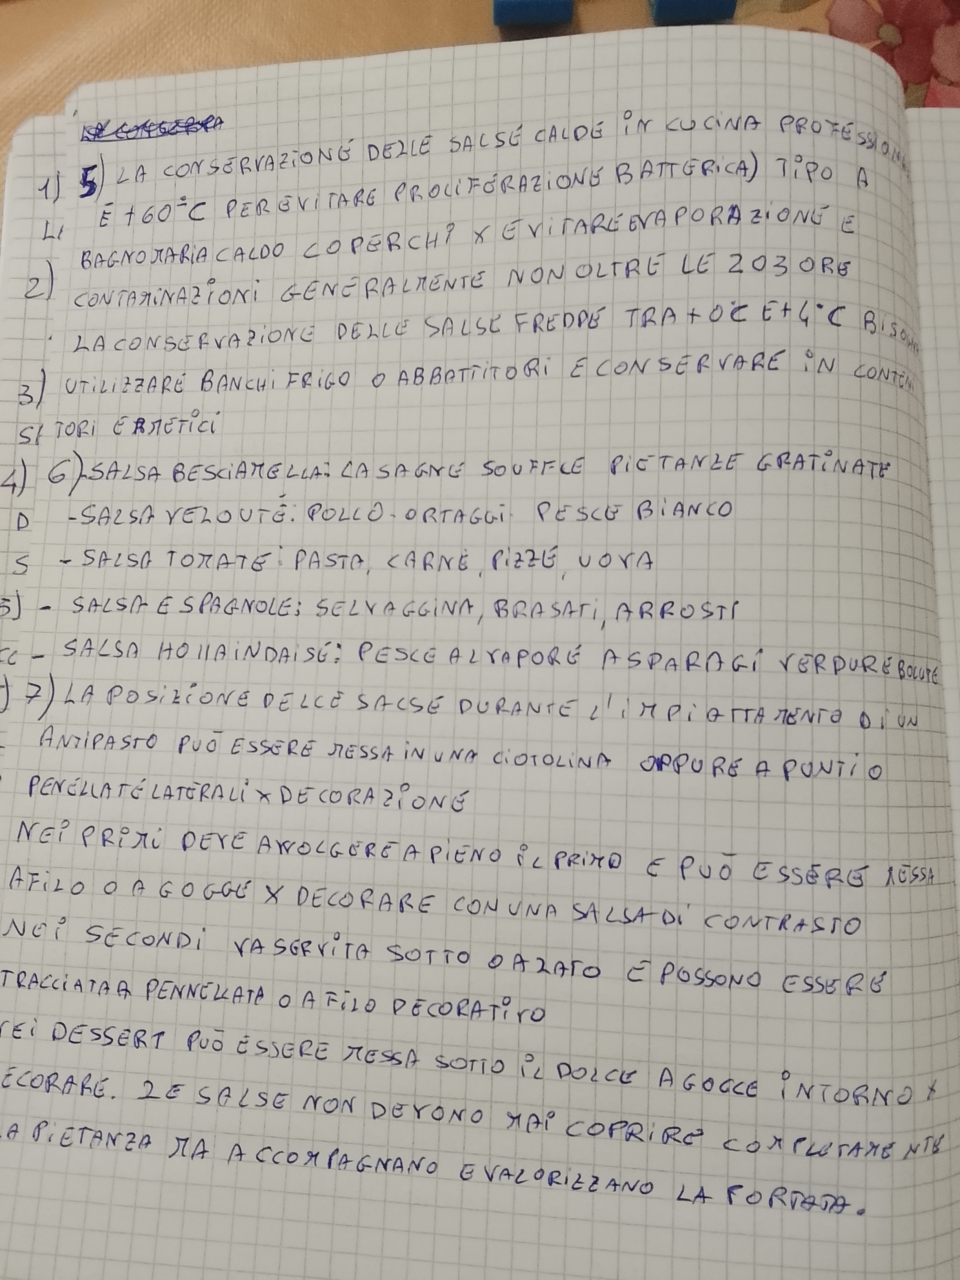 5) LA CONSERVAZIONE DELLE SALSE CALDE IN CUCINA PROFESSION
1) È +60°C PER EVITARE PROLIFERAZIONE BATTERICA) TIPO A
LI BAGNOMARIA CALDO COPERCHI X EVITARE EVAPORAZIONE E
2) CONTAMINAZIONI GENERALMENTE NON OLTRE LE 2 O 3 ORE
LA CONSERVAZIONE DELLE SALSE FREDDE TRA +0°C E +4°C BISOGN
3) UTILIZZARE BANCHI FRIGO O ABBATTITORI E CONSERVARE IN CONTENI
SI TORI ERMETICI
4) 6) - SALSA BESCIAMELLA: LASAGNE SOUFFLE PIETANZE GRATINATE
D - SALSA VELOUTÉ: POLLO - ORTAGGI - PESCE BIANCO
S - SALSA TOMATE: PASTA, CARNE, PIZZE, UOVA
5) - SALSA ESPAGNOLE: SELVAGGINA, BRASATI, ARROSTI
CC - SALSA HOLLAINDAISE: PESCE AL VAPORE ASPARAGI VERDURE BOLLITE
) 7) LA POSIZIONE DELLE SALSE DURANTE L'IMPIATTAMENTO DI UN
ANTIPASTO PUÒ ESSERE MESSA IN UNA CIOTOLINA OPPURE A PUNTI O
PENELLATE LATERALI X DECORAZIONE
NEI PRIMI DEVE AVVOLGERE A PIENO IL PRIMO E PUÒ ESSERE MESSA
A FILO O A GOGGE X DECORARE CON UNA SALSA DI CONTRASTO
NEI SECONDI VA SERVITA SOTTO O A LATO E POSSONO ESSERE
TRACCIATA A PENNELLATA O A FILO DECORATIVO
NEI DESSERT PUÒ ESSERE MESSA SOTTO IL DOLCE A GOCCE INTORNO X
ECORARE. LE SALSE NON DEVONO MAI COPRIRE COMPLETAMENTE
LA PIETANZA MA ACCOMPAGNANO E VALORIZZANO LA PORTATA.